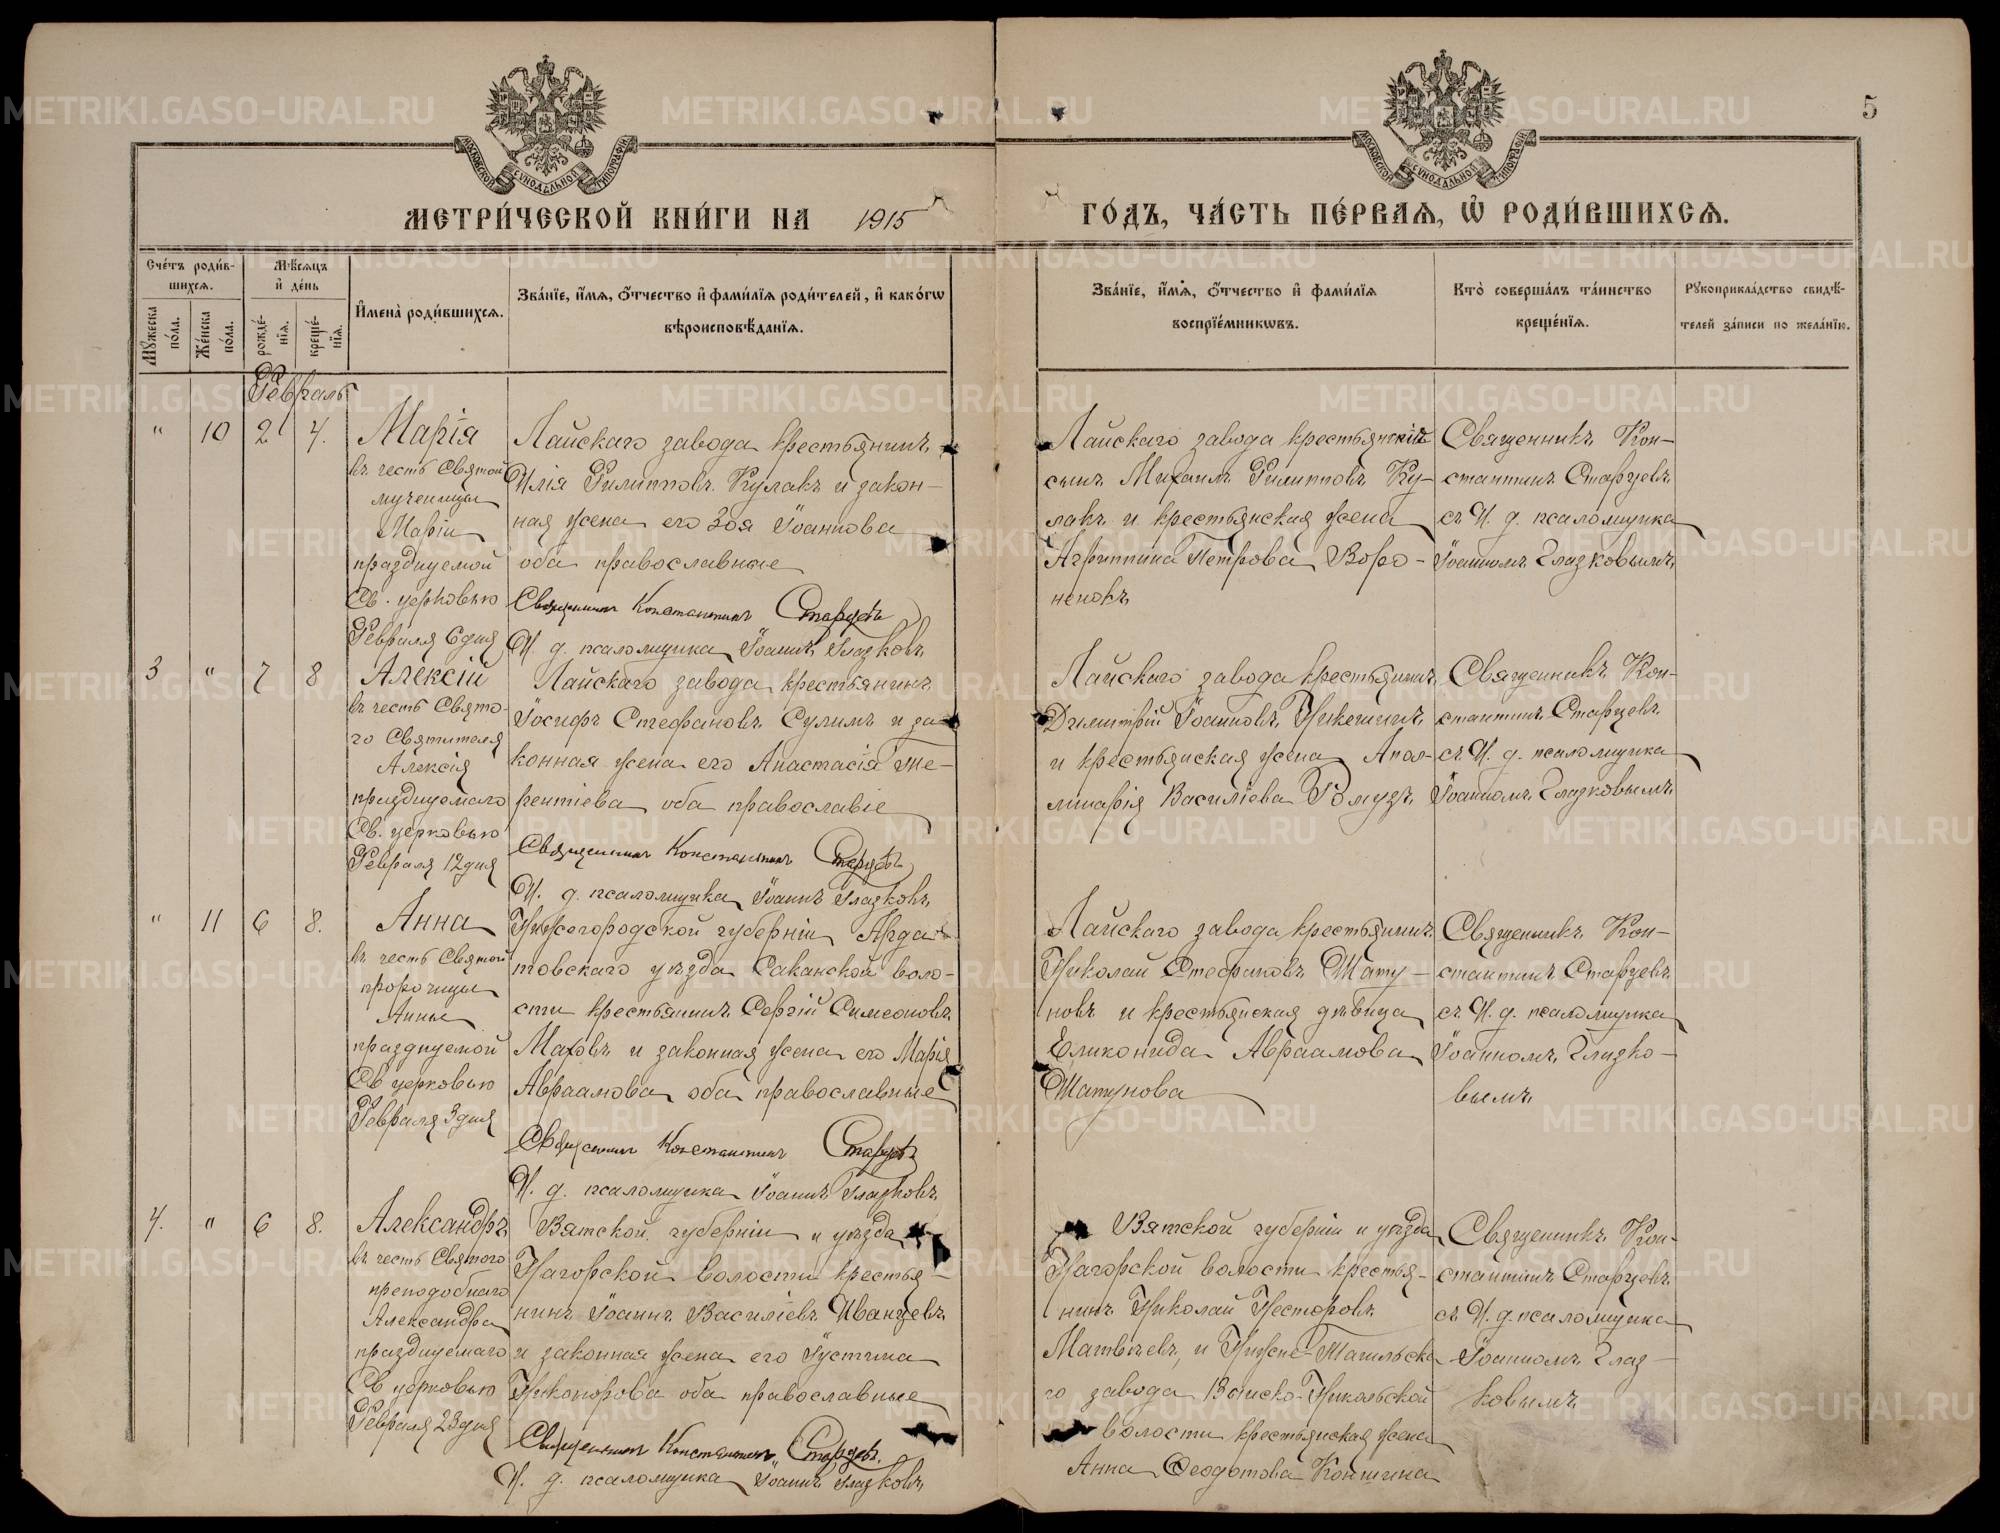 5
МЕТРИ́ЧЕСКОЙ КНИ́ГИ НА 1915 ГО́ДЪ, ЧА́СТЬ ПЕ́РВАЯ, Ѡ РОДИ́ВШИХСЯ.
Сче́тъ роди́в-
шихся.
Мꙋ́жеска по́ла.
Же́нска по́ла.
Мѣ́сяцъ
и де́нь
рожде́-
нїя.
креще́-
нїя.
Имена̀ роди́вшихся.
Зва́нїе, и́мя, о́тчество и фами́лїя роди́телей, и како́гѡ
вѣроисповѣ́данїя.
Зва́нїе, и́мя, о́тчество и фами́лїя
воспрїе́мникѡвъ.
Кто̀ соверша́лъ та́инство
креще́нїя.
Рꙋкоприкла́дство свидѣ́-
телей за́писи по жела́нїю.
Февраль
" 10 2 4.
Марія
въ честь Святой
мученицы
Маріи
празднуемой
Св. церковью
Февраля 6 дня
Лайскаго завода крестьянинъ
Илія Филипповъ Кулакъ и закон-
ная жена его Зоя Іоаннова
оба православные
Священникъ Константинъ Старцевъ
И. д. псаломщика Іоаннъ Глазковъ
Лайскаго завода крестьянскій
сынъ Михаилъ Филипповъ Ку-
лакъ и крестьянская жена
Агриппина Петрова Воро-
ненокъ
Священникъ Кон-
стантинъ Старцевъ
съ И. д. псаломщика
Іоанномъ Глазковымъ
3 " 7 8
Алексій
въ честь Свято-
го Святителя
Алексія
празднуемаго
Св. церковью
Февраля 12 дня
Лайскаго завода крестьянинъ
Іосифъ Стефановъ Сулимъ и за
конная жена его Анастасія Те-
рентіева оба православные
Священникъ Константинъ Старцевъ
И. д. псаломщика Іоаннъ Глазковъ
Лайскаго завода крестьянинъ
Димитрій Іоанновъ Никешинъ
и крестьянская жена Апол-
линарія Василіева Ромузъ
Священникъ Кон-
стантинъ Старцевъ
съ И. д. псаломщика
Іоанномъ Глазковымъ
" 11 6 8.
Анна
въ честь Святой
пророчицы
Анны
празднуемой
Св церковью
Февраля 3 дня
Нижегородской губерніи Арда-
товскаго уѣзда Саканской воло-
сти крестьянинъ Сергій Симеоновъ
Маховъ и законная жена его Марія
Авраамова оба православные
Священникъ Константинъ Старцевъ
И. д. псаломщика Іоаннъ Глазковъ
Лайскаго завода крестьянинъ
Николай Стефановъ Шату-
новъ и крестьянская дѣвица
Еликонида Авраамова
Шатунова
Священникъ Кон-
стантинъ Старцевъ
съ И. д. псаломщика
Іоанномъ Глазко-
вымъ
4. " 6 8.
Александръ
въ честь Святого
преподобнаго
Александра
празднуемаго
Св церковью
Февраля 23 дня
Вятской губерніи и уѣзда
Нагорской волости крестья-
нинъ Іоаннъ Василіевъ Иванцевъ
и законная жена его Іустина
Никонорова оба православные
Священникъ Константинъ Старцевъ.
И. д. псаломщика Іоаннъ Глазковъ
Вятской губерніи и уѣзда
Нагорской волости крестья-
нинъ Николай Несторовъ
Матвѣевъ, и Нижне-Тагильска
го завода Выйско-Никольской
волости крестьянская жена
Анна Ѳеодотова Коншина
Священникъ Кон-
стантинъ Старцевъ
съ И. д. псаломщика
Іоанномъ Глаз-
ковымъ
METRIKI.GASO-URAL.RU